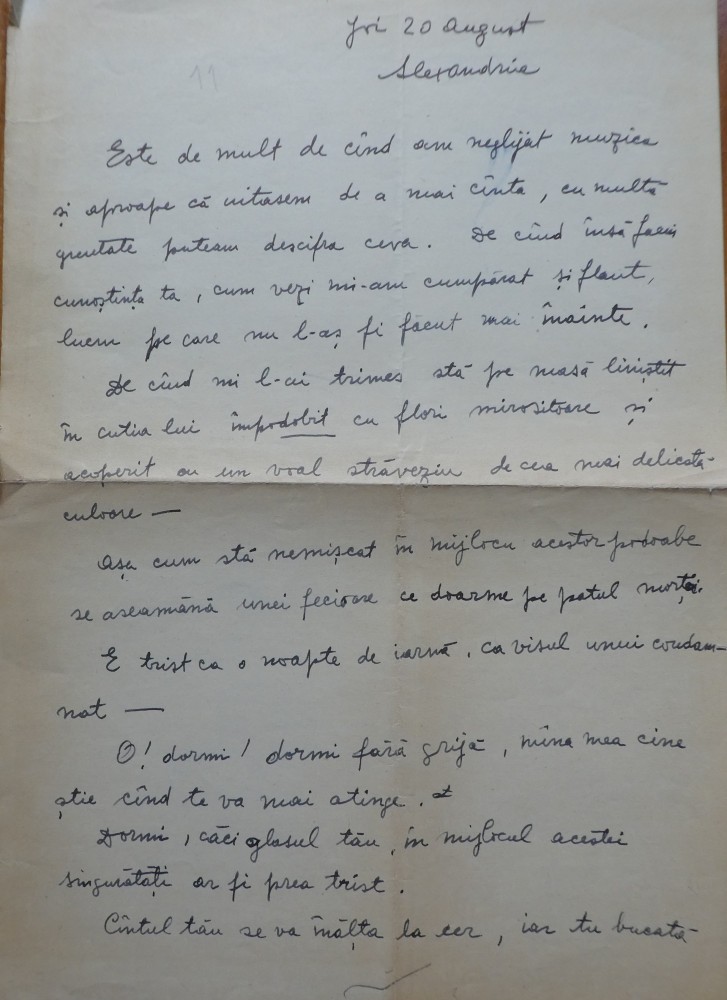 Joi 20 August
Alexandria
11
Este de mult de cînd am neglijat muzica
și aproape că uitasem de a mai cînta, cu multă
greutate puteam descifra ceva. De cînd însă făcui
cunoștința ta, cum vezi mi-am cumpărat și flaut,
lucru pe care nu l-aș fi făcut mai înainte.
De cînd mi l-ai trimes stă pe masă liniștit
în cutia lui împodobit cu flori mirositoare și
acoperit cu un voal străveziu de cea mai delicată
culoare —
Așa cum stă nemișcat în mijlocu acestor podoabe
se aseamănă unei fecioare ce doarme pe patul morței.
E trist ca o noapte de iarnă, ca visul unui condam-
nat —
O! dormi! dormi fără grijă, mîna mea cine
știe cînd te va mai atinge.
Dormi, căci glasul tău, în mijlocul acestei
singurătăți ar fi prea trist.
Cîntul tău se va înălța la cer, iar tu bucată